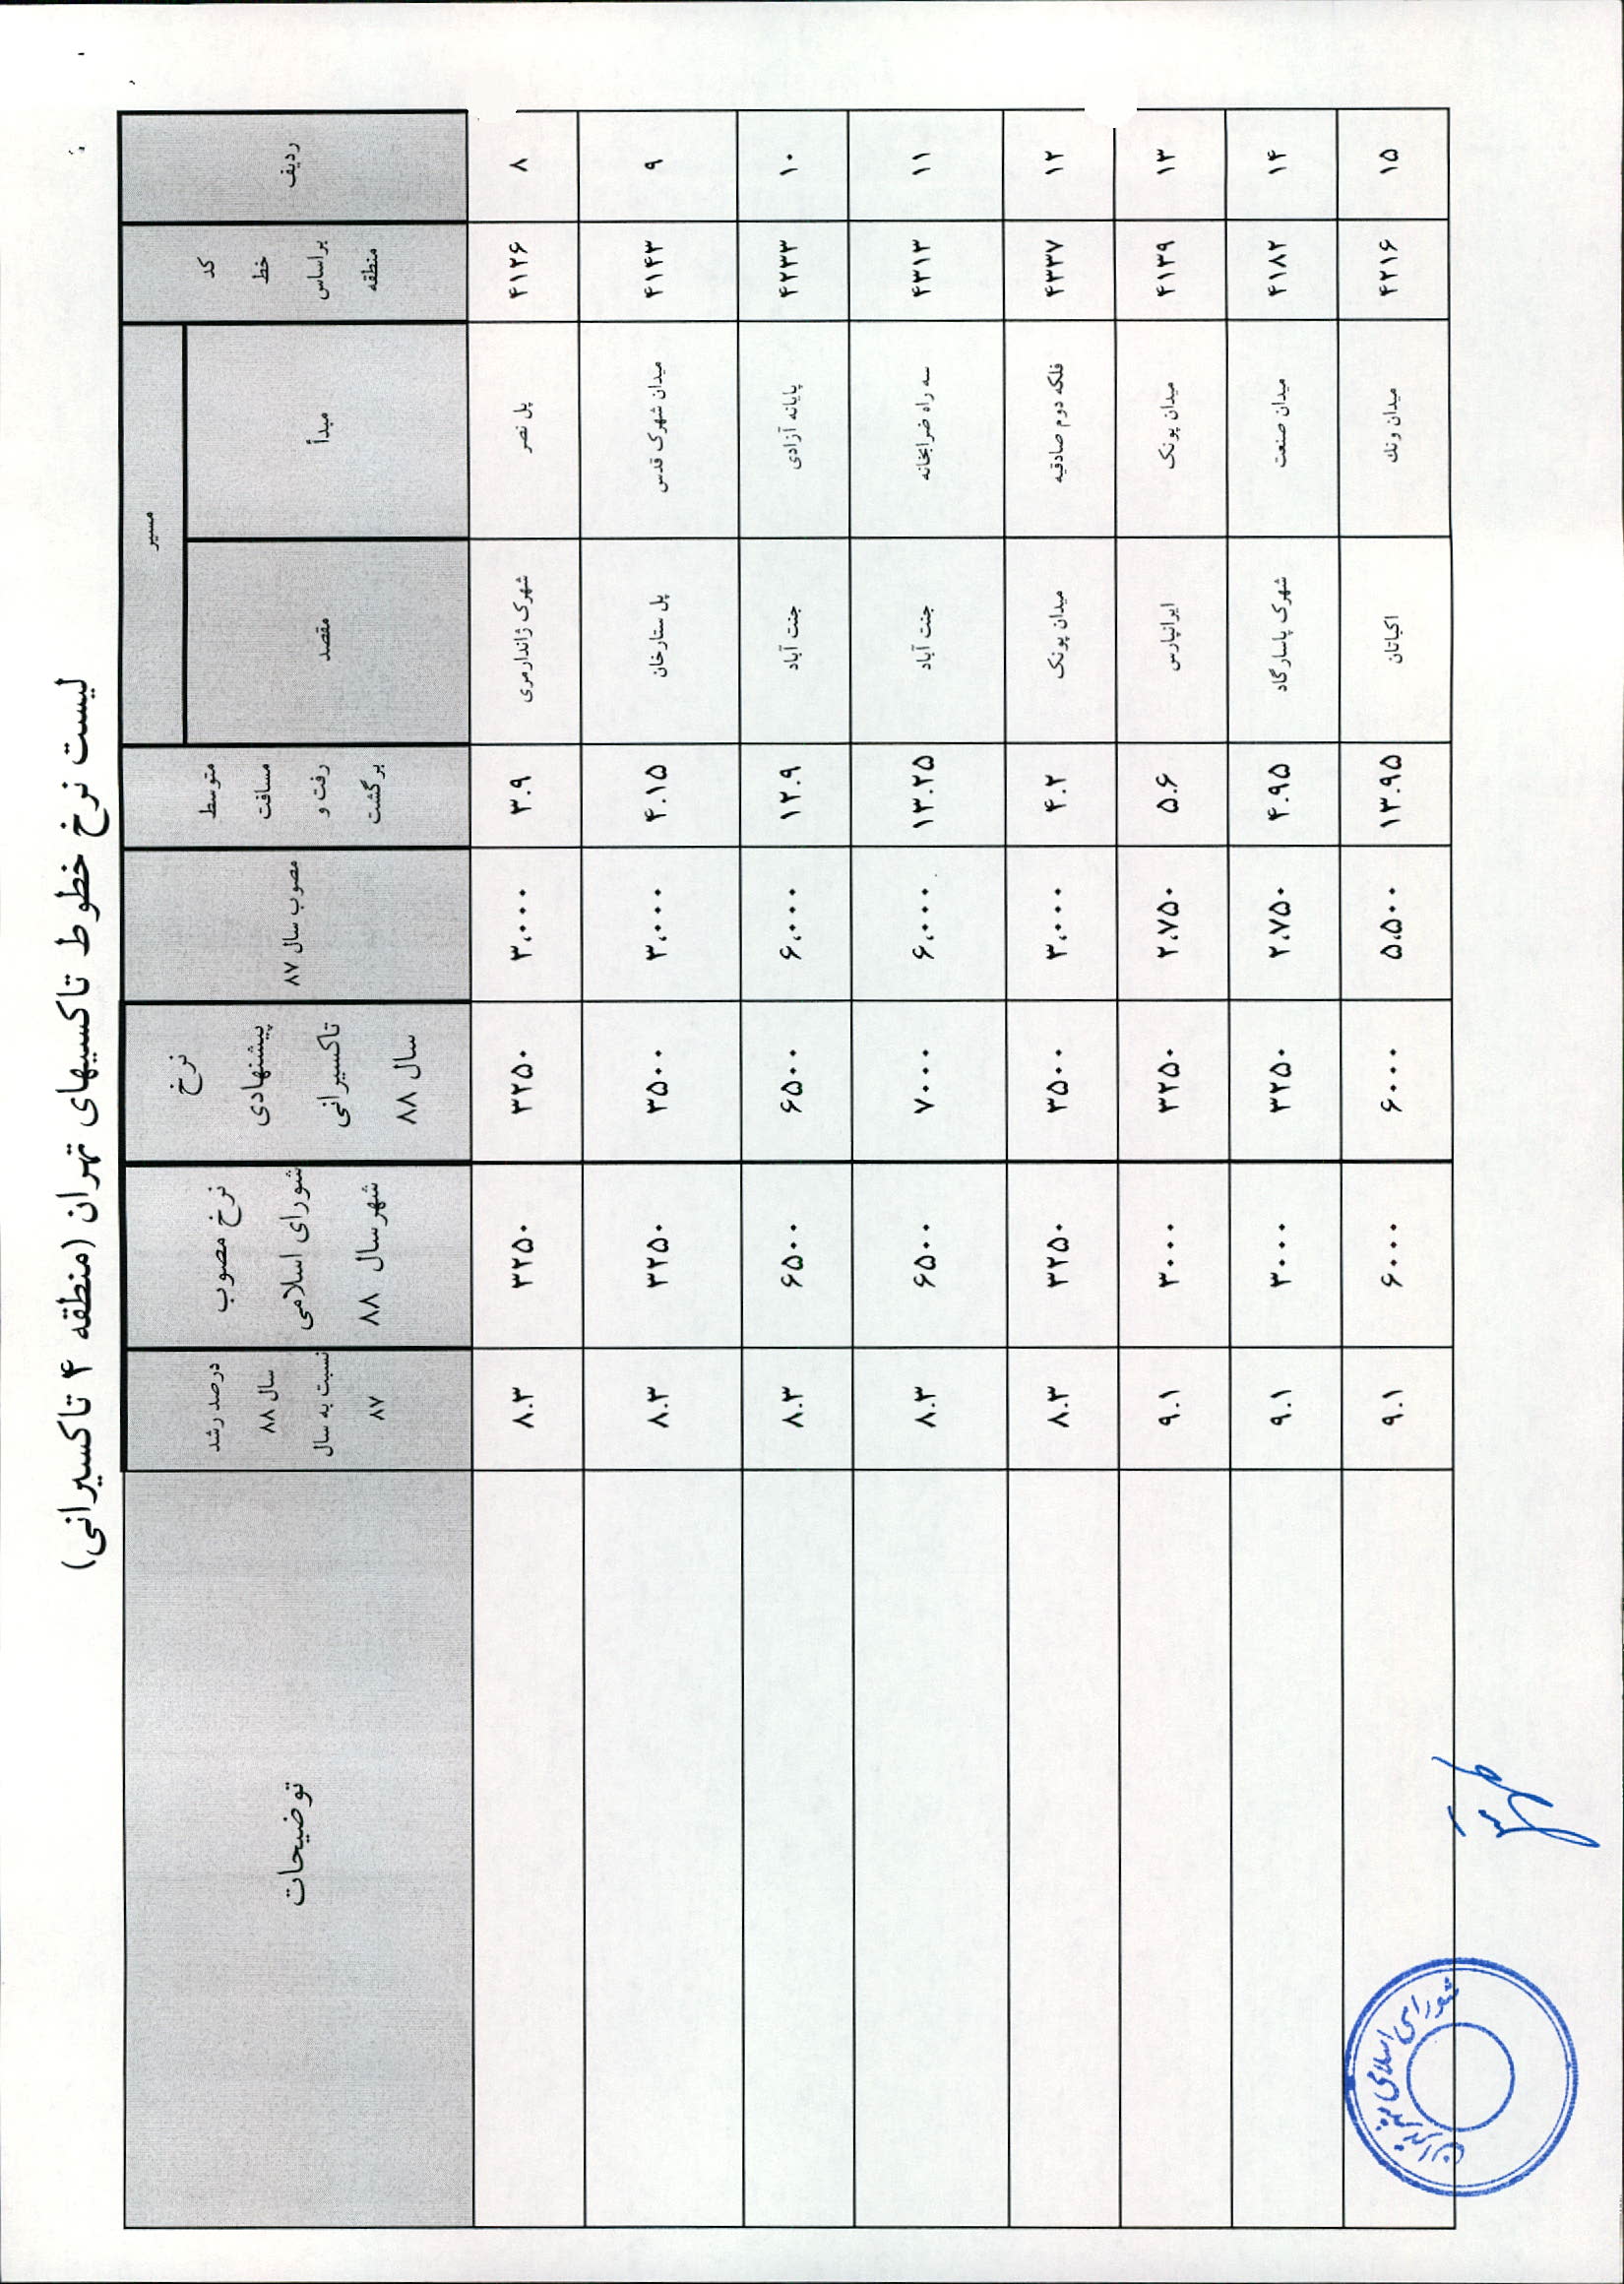 لیست نرخ خطوط تاکسیهای تهران (منطقه ۴ تاکسیرانی)
ردیف
کد خط براساس منطقه
مسیر
مبدأ
مقصد
متوسط مسافت رفت و برگشت
مصوب سال ۸۷
نرخ پیشنهادی تاکسیرانی سال ۸۸
نرخ مصوب شورای اسلامی شهر سال ۸۸
درصد رشد سال ۸۸ نسبت به سال ۸۷
توضیحات
۸ ۴۱۲۶ پل نصر شهرک ژاندارمری ۳.۹ ۳،۰۰۰ ۳۲۵۰ ۳۲۵۰ ۸.۳
۹ ۴۱۴۳ میدان شهرک قدس پل ستارخان ۴.۱۵ ۳،۰۰۰ ۳۵۰۰ ۳۲۵۰ ۸.۳
۱۰ ۴۲۳۳ پایانه آزادی جنت آباد ۱۲.۹ ۶،۰۰۰ ۶۵۰۰ ۶۵۰۰ ۸.۳
۱۱ ۴۳۱۳ سه راه ضرابخانه جنت آباد ۱۳.۲۵ ۶،۰۰۰ ۷۰۰۰ ۶۵۰۰ ۸.۳
۱۲ ۴۳۳۷ فلکه دوم صادقیه میدان پونک ۴.۲ ۳،۰۰۰ ۳۵۰۰ ۳۲۵۰ ۸.۳
۱۳ ۴۱۳۹ میدان پونک ایرانپارس ۵.۶ ۲،۷۵۰ ۳۲۵۰ ۳۰۰۰ ۹.۱
۱۴ ۴۱۸۲ میدان صنعت شهرک پاسارگاد ۴.۹۵ ۲،۷۵۰ ۳۲۵۰ ۳۰۰۰ ۹.۱
۱۵ ۴۲۱۶ میدان ونك اکباتان ۱۳.۹۵ ۵،۵۰۰ ۶۰۰۰ ۶۰۰۰ ۹.۱
شورای اسلامی